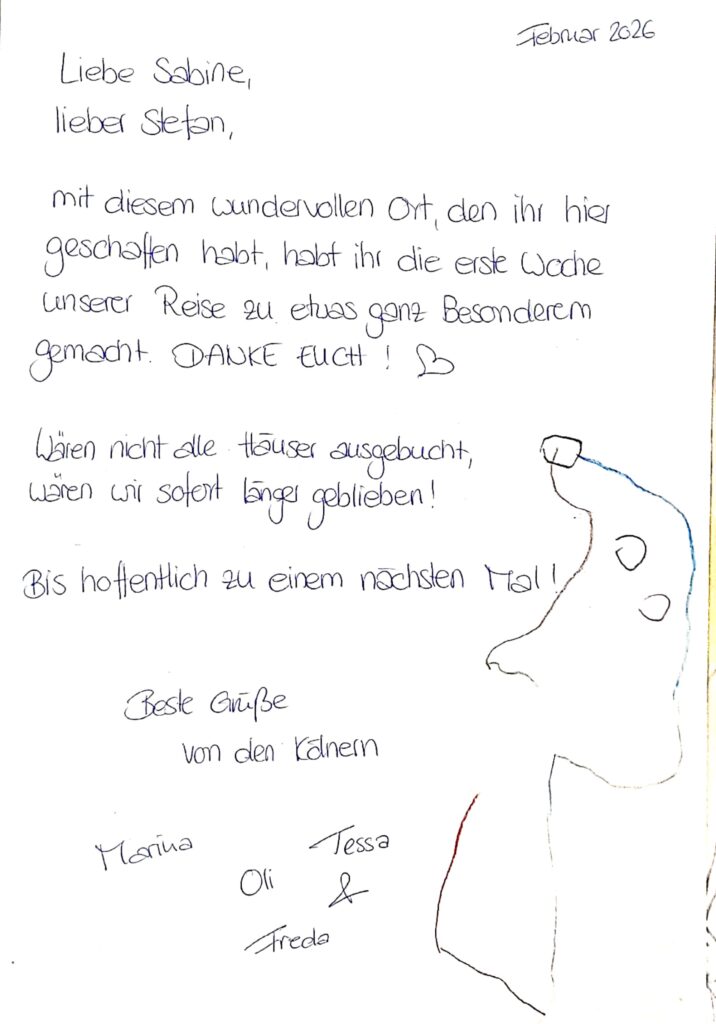 Februar 2026
Liebe Sabine,
lieber Stefan,
mit diesem wundervollen Ort, den ihr hier
geschaffen habt, habt ihr die erste Woche
unserer Reise zu etwas ganz Besonderem
gemacht. DANKE EUCH ! ♡
Wären nicht alle Häuser ausgebucht,
wären wir sofort länger geblieben!
Bis hoffentlich zu einem nächsten Mal!
Beste Grüße
von den Kölnern
Marina
Tessa
Oli &
Freda